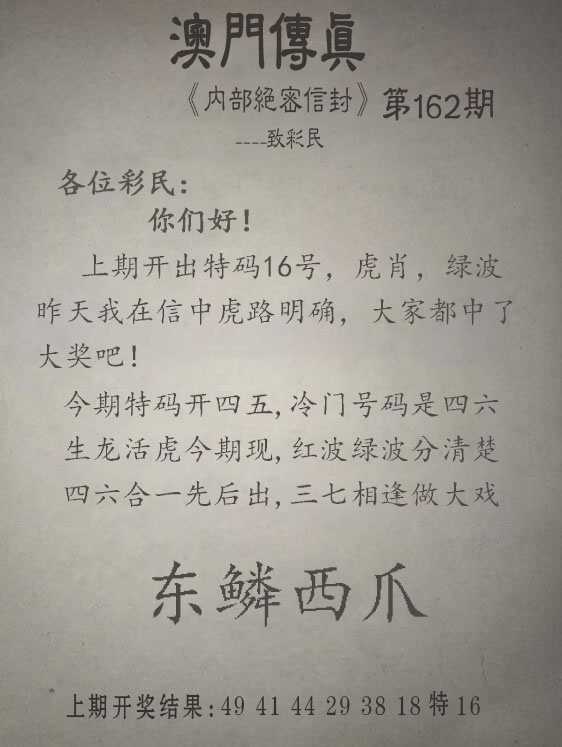 澳門傳眞
《内部絕密信封》第162期
----致彩民
各位彩民：
你们好！
上期开出特码16号，虎肖，绿波
昨天我在信中虎路明确，大家都中了
大奖吧！
今期特码开四五,冷门号码是四六
生龙活虎今期现,红波绿波分清楚
四六合一先后出,三七相逢做大戏
东鳞西爪
上期开奖结果:49 41 44 29 38 18特16